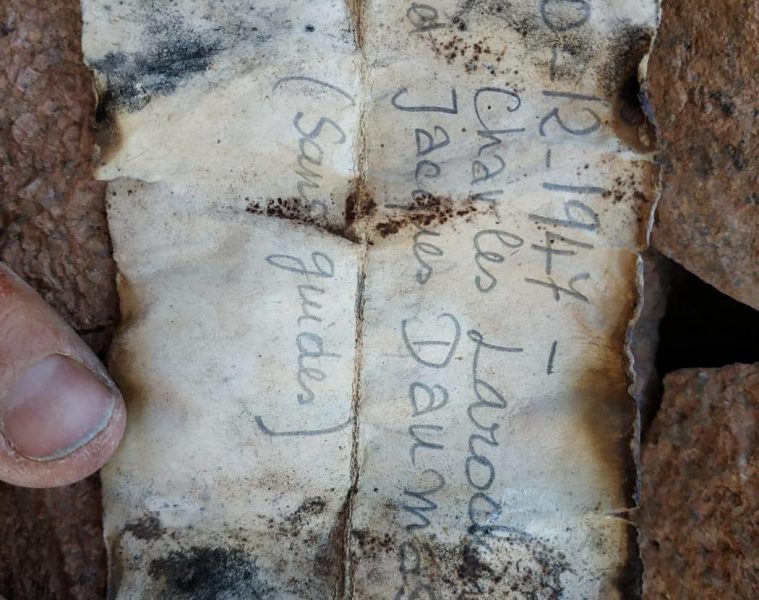 0-12-1947 –
Charles Laroch
d Jacques Dauma
(Sans guides)